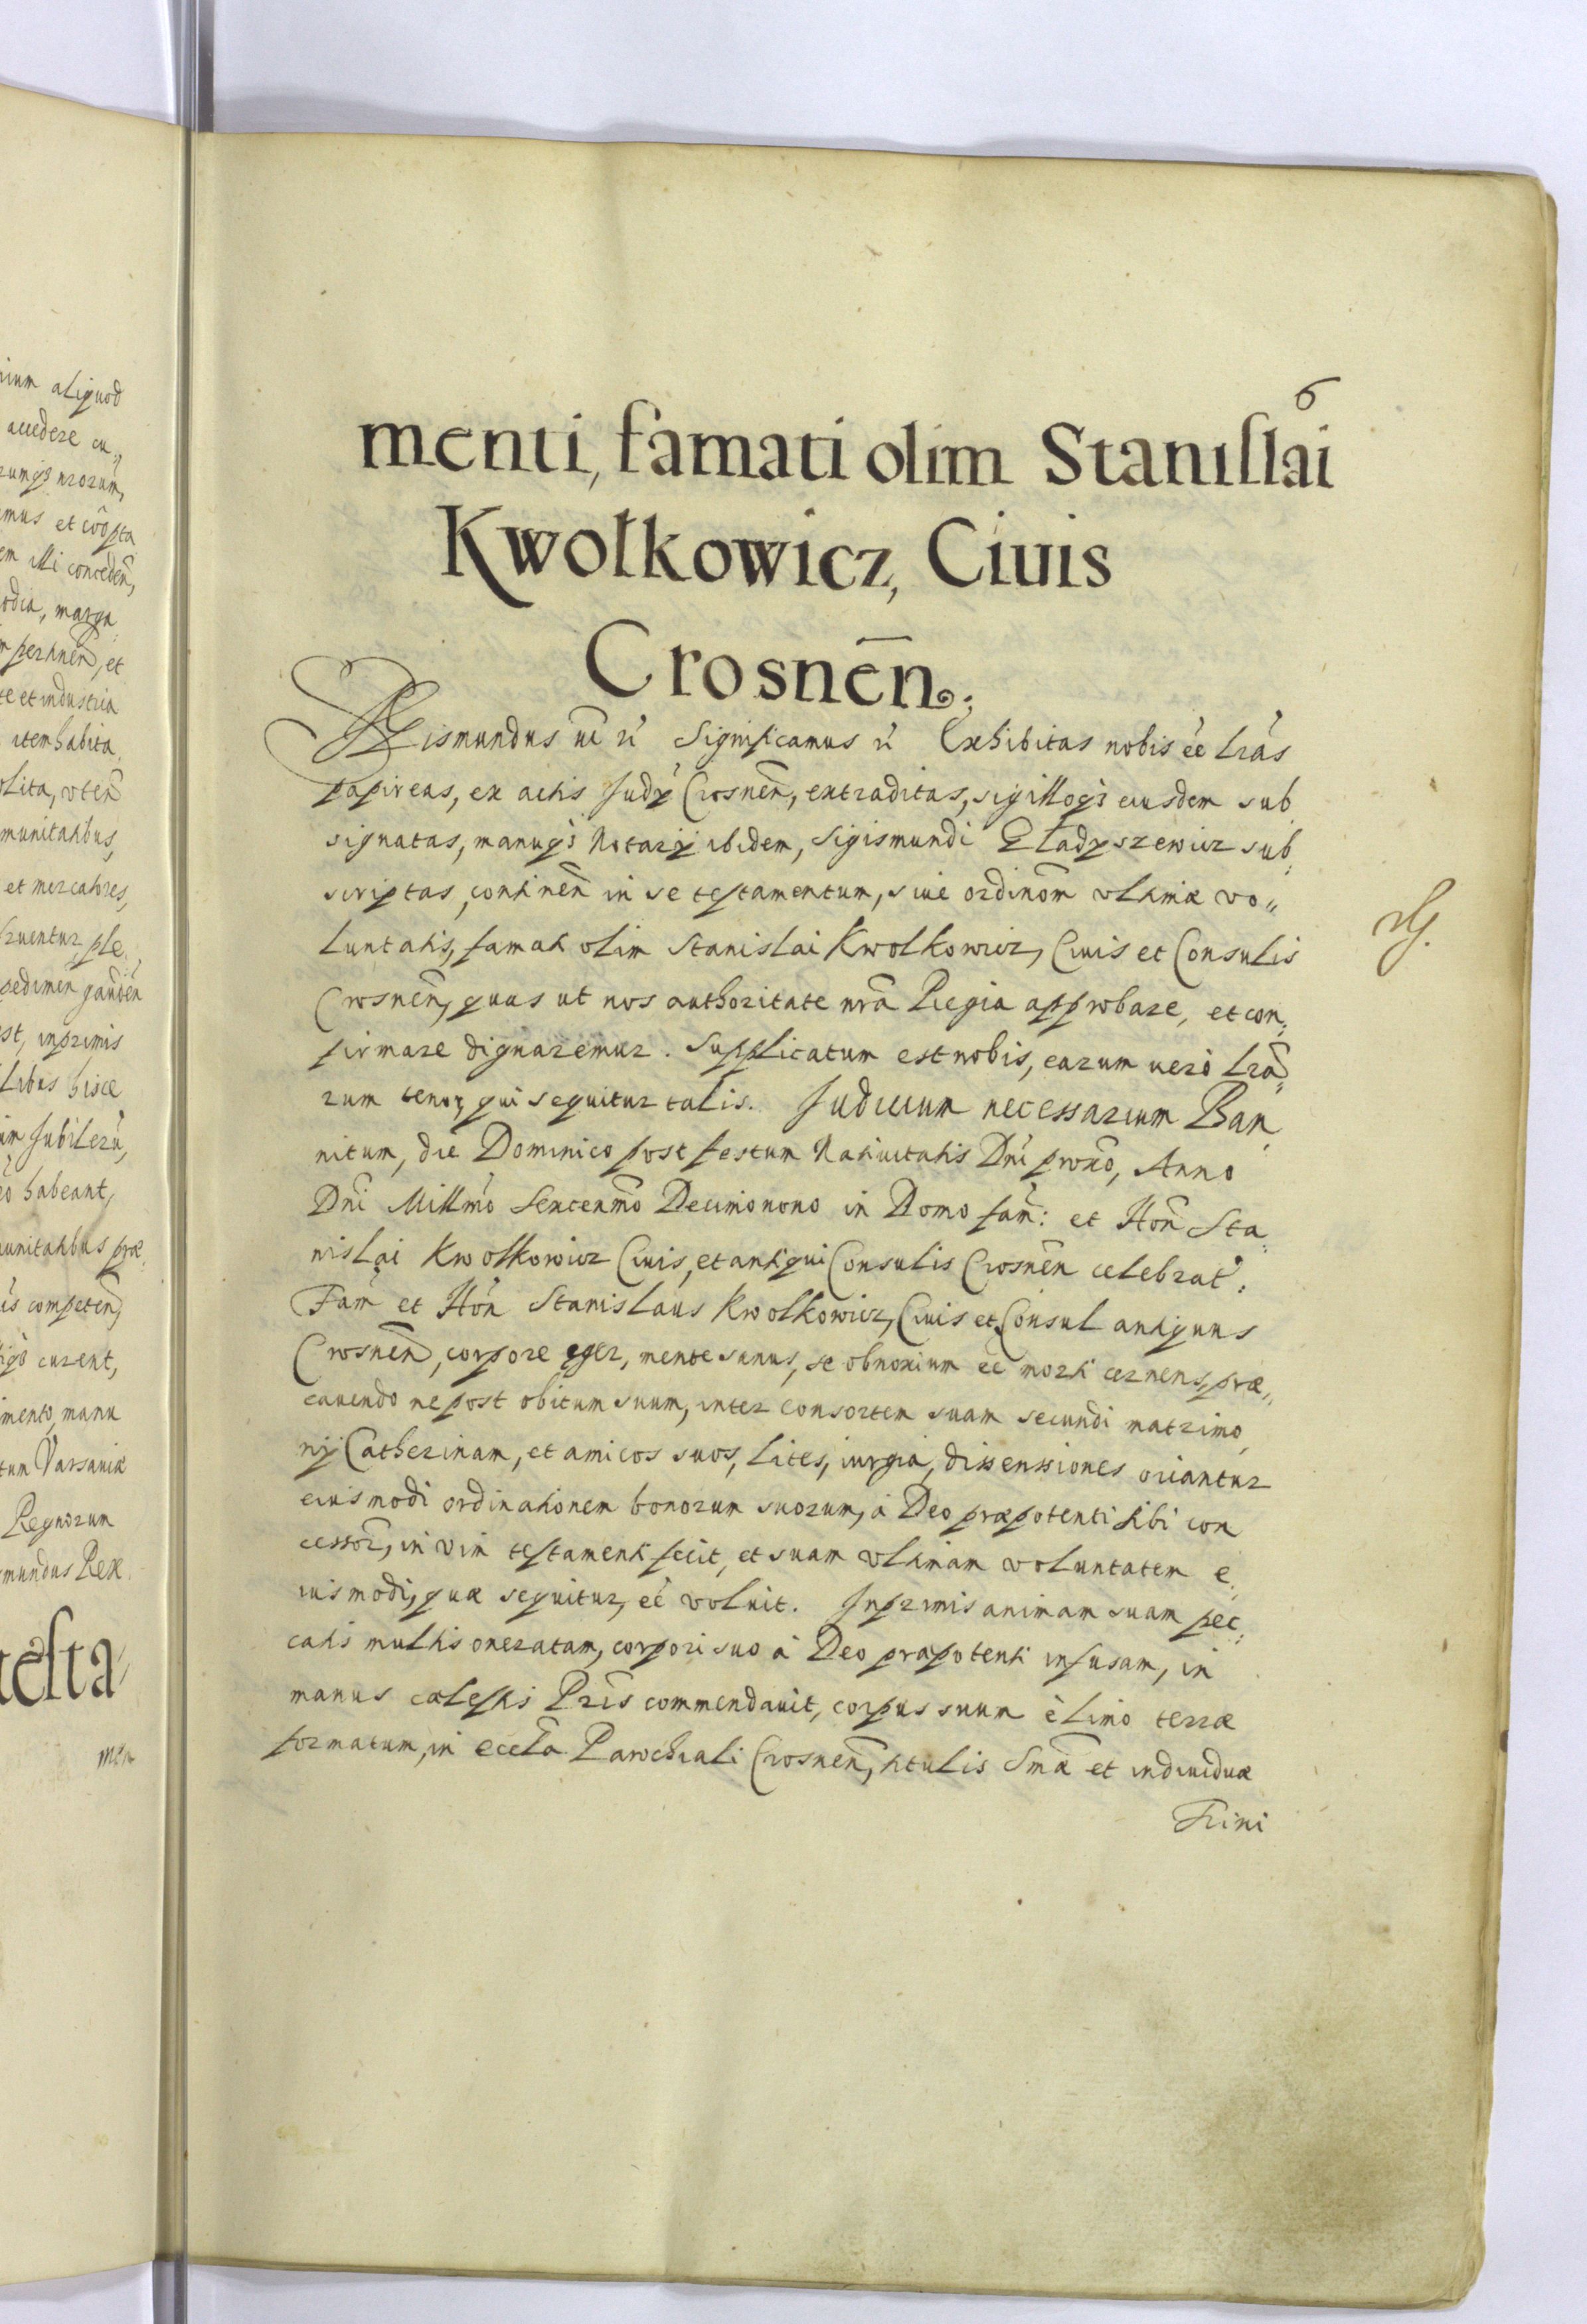 nium aliquod
accedere cu„
mus et
em illi conceden̄,
odia, marga
pertinen̄, et
te et industria
item habita
olita, vten̄
munitatibus,
et mercatores,
fruentur ple„
pedimen gauden̄
st, inprimis
libus hisce
habeant,
munitatibus præ„
is competen̄,
curent,
imento, manu
tum Varsauiæ
Regnorum
mundus Rex.
testa„
men
6
menti, famati olim Stanislai
Kwolkowicz, Ciuis
Crosnēn.
Sigismundus ut rṙ Significamus rṙ Exhibitas nobis eē Lrās
papireas, ex actis Judÿ Crosnen̄, extraditas, sigilloq; eiusdem sub„
signatas, manuq; Notarÿ ibidem, Sigismundi Gładyszewicz sub„
scriptas, continen̄ in se testamentum, siue ordinōm vltimæ vo„
luntatis, famati olim Stanislai Kwolkowicz, Ciuis et Consulis
Crosnen̄, quas ut nos authoritate nrā Regia approbare, et con„
firmare dignaremur. Supplicatum est nobis, earum uerò Lrā„
rum tenor, qui sequitur talis. Judicium necessarium Ban„
nitum, die Dominico post festum Natiuitatis Dnī proxō, Anno
Dnī Millmō Sexcenmō Decimonono in Domo fam̄: et Hon̄ Sta„
nislai Kwolkowicz Ciuis, et antiqui Consulis Crosnen̄ celebrat.
Fam̄ et Hon̄ Stanislaus Kwolkowicz, Ciuis et Consul antiquus
Crosnen̄, corpore eger, mente sanus, se obnoxium eē morti cernens, præ„
cauendo ne post obitum suum, inter consortem suam secundi matrimo„
nÿ Catherinam, et amicos suos, lites, iurgia, dissensiones oriantur
eiusmodi ordinationem bonorum suorum, à Deo præpotenti sibi con
cessor̄, in vim testamenti fecit, et suam vltimam voluntatem e„
iusmodi, quæ sequitur, eē voluit. Inprimis animam suam pec„
catis multis oneratam, corpori suo à Deo præpotenti infusam, in
manus cælestis Prīs commendauit, corpus suum è limo terræ
formatum, in eccłā Parochiali Crosnen̄, titulis Smǣ et indiuiduæ
Trini